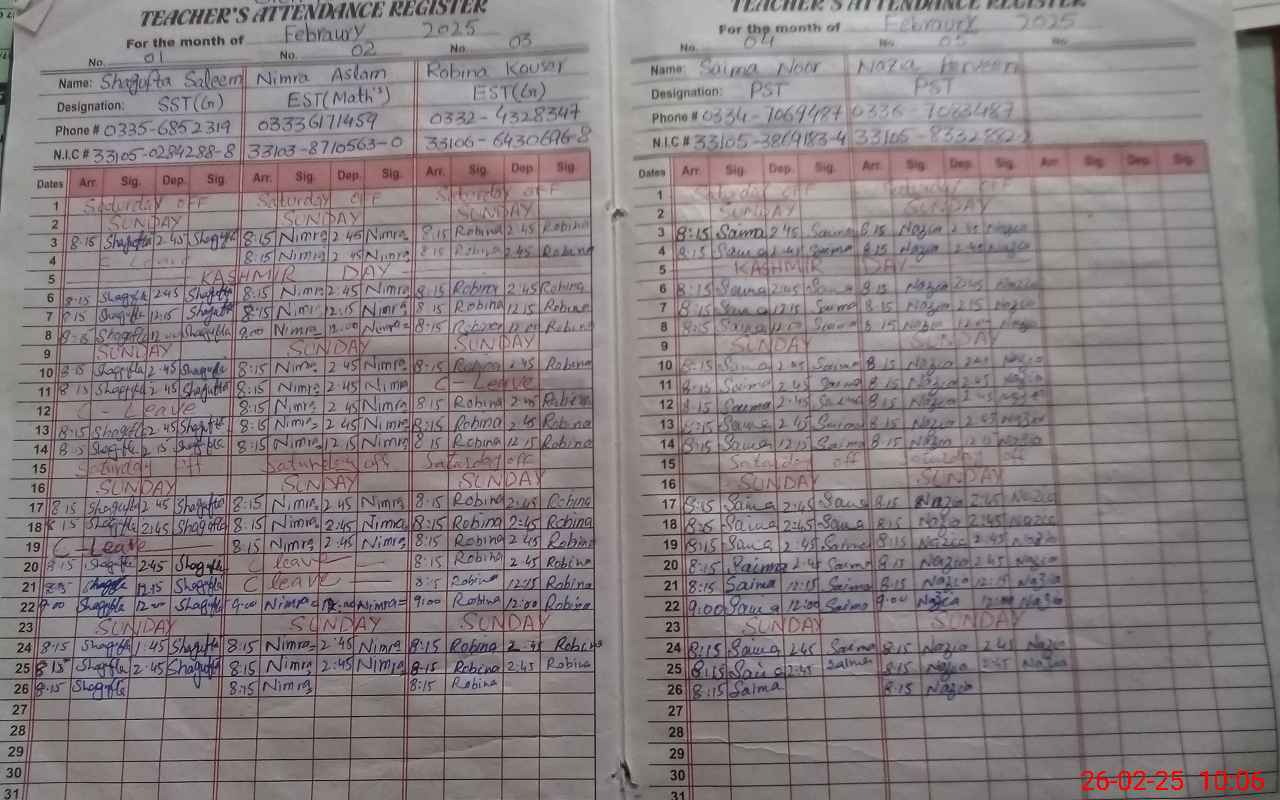 TEACHER'S ATTENDANCE REGISTER
For the month of Febraury 2025
No. 01 No. 02 No. 03
Name: Shagufta Saleem Nimra Aslam Robina Kousar
Designation: SST(Gn) EST(Math's) EST(Gn)
Phone # 0335-6852319 03336171459 0332-4328347
N.I.C # 33105-0284288-8 33103-8710563-0 33106-6430696-8
Dates Arr. Sig. Dep. Sig. Arr. Sig. Dep. Sig. Arr. Sig. Dep. Sig.
1 Saturday off Saturday off Saturday off
2 SUNDAY SUNDAY SUNDAY
3 8:15 Shagufta 2:45 Shagufta 8:15 Nimra 2:45 Nimra 8:15 Robina 2:45 Robina
4 C Leave 8:15 Nimra 2:45 Nimra 8:15 Robina 2:45 Robina
5 KASHMIR DAY
6 8:15 Shagufta 2:45 Shagufta 8:15 Nimra 2:45 Nimra 8:15 Robina 2:45 Robina
7 8:15 Shagufta 12:15 Shagufta 8:15 Nimra 12:15 Nimra 8:15 Robina 12:15 Robina
8 Shagufta Shagufta 9:00 Nimra 12:00 Nimra 8:15 Robina 12:00 Robina
9 SUNDAY SUNDAY SUNDAY
10 8:15 Shagufta 2:45 Shagufta 8:15 Nimra 2:45 Nimra 8:15 Robina 2:45 Robina
11 8:15 Shagufta 2:45 Shagufta 8:15 Nimra 2:45 Nimra C - Leave
12 C - Leave 8:15 Nimra 2:45 Nimra 8:15 Robina 2:45 Robina
13 8:15 Shagufta 2:45 Shagufta 8:15 Nimra 2:45 Nimra 8:15 Robina 2:45 Robina
14 8:15 Shagufta Shagufta 8:15 Nimra 12:15 Nimra 8:15 Robina 12:15 Robina
15 Saturday off Saturday off Saturday off
16 SUNDAY SUNDAY SUNDAY
17 8:15 Shagufta 2:45 Shagufta 8:15 Nimra 2:45 Nimra 8:15 Robina 2:45 Robina
18 8:15 Shagufta 2:45 Shagufta 8:15 Nimra 2:45 Nimra 8:15 Robina 2:45 Robina
19 C - Leave 8:15 Nimra 2:45 Nimra 8:15 Robina 2:45 Robina
20 8:15 Shagufta 2:45 Shagufta C leave 8:15 Robina 2:45 Robina
21 8:15 Shagufta 12:15 Shagufta C leave 8:15 Robina 12:15 Robina
22 9:00 Shagufta 12:00 Shagufta 9:00 Nimra 12:00 Nimra 9:00 Robina 12:00 Robina
23 SUNDAY SUNDAY SUNDAY
24 8:15 Shagufta 1:45 Shagufta 8:15 Nimra 2:45 Nimra 8:15 Robina 2:45 Robina
25 8:15 Shagufta 2:45 Shagufta 8:15 Nimra 2:45 Nimra 8:15 Robina 2:45 Robina
26 8:15 Shagufta 8:15 Nimra 8:15 Robina
27
28
29
30
31
TEACHER'S ATTENDANCE REGISTER
For the month of Febraury 2025
No. 04 No. 05 No.
Name: Saima Noor Nazia Perveen
Designation: PST PST
Phone # 0334-7069487 0336-
N.I.C # 33105-3869183-4 33105-
Dates Arr. Sig. Dep. Sig. Arr. Sig. Dep. Sig. Arr. Sig. Dep. Sig.
1 Saturday off Saturday off
2 SUNDAY SUNDAY
3 8:15 Saima 2:45 Saima 8:15 Nazia 2:45 Nazia
4 8:15 Saima 2:45 Saima 8:15 Nazia 2:45 Nazia
5 KASHMIR DAY
6 8:15 Saima 2:45 Saima 8:15 Nazia 2:45 Nazia
7 8:15 Saima 12:15 Saima 8:15 Nazia Nazia
8 8:15 Saima Saima 8:15 Nazia Nazia
9 SUNDAY SUNDAY
10 8:15 Saima 2:45 Saima 8:15 Nazia 2:45 Nazia
11 8:15 Saima 2:45 Saima 8:15 Nazia 2:45 Nazia
12 8:15 Saima 2:45 Saima 8:15 Nazia 2:45 Nazia
13 8:15 Saima 2:45 Saima 8:15 Nazia 2:45 Nazia
14 8:15 Saima 12:15 Saima 8:15 Nazia Nazia
15 Saturday off Saturday off
16 SUNDAY SUNDAY
17 8:15 Saima 2:45 Saima 8:15 Nazia 2:45 Nazia
18 8:15 Saima 2:45 Saima 8:15 Nazia 2:45 Nazia
19 8:15 Saima 2:45 Saima 8:15 Nazia 2:45 Nazia
20 8:15 Saima 2:45 Saima 8:15 Nazia 2:45 Nazia
21 8:15 Saima 12:15 Saima 8:15 Nazia 12:15 Nazia
22 9:00 Saima 12:00 Saima 9:00 Nazia 12:00 Nazia
23 SUNDAY SUNDAY
24 8:15 Saima 2:45 Saima 8:15 Nazia 2:45 Nazia
25 8:15 Saima 2:45 Saima 8:15 Nazia 2:45 Nazia
26 8:15 Saima 8:15 Nazia
27
28
29
30
31
26-02-25 10:06